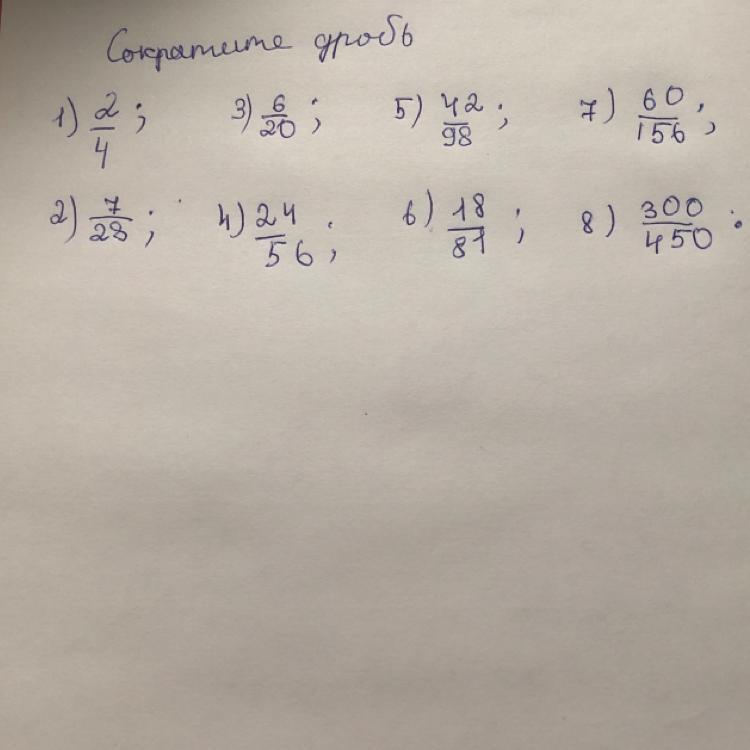 Сократите дробь
1) 2/4; 3) 6/20; 5) 42/98; 7) 60/156;
2) 7/28; 4) 24/56; 6) 18/81; 8) 300/450.